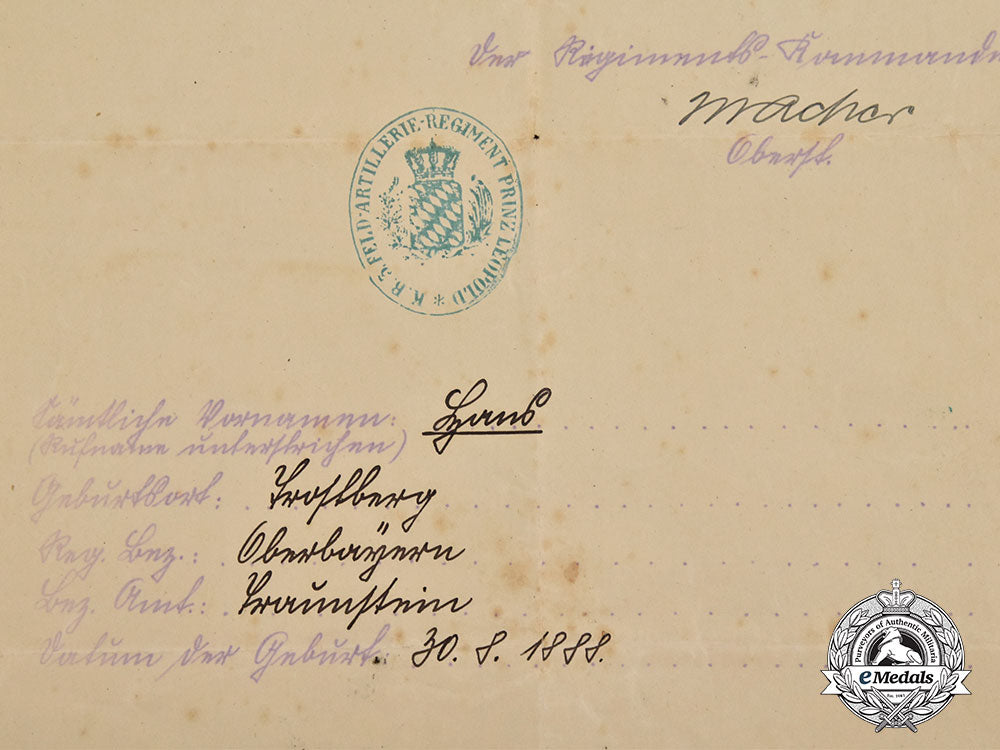 Der Regiments-Kommande
Macher
Oberst.
K. B. 5. FELD-ARTILLERIE-REGIMENT PRINZ LEOPOLD *
Sämtliche Vornamen: Hans
(Rufname unterstrichen)
Geburtsort: Trostberg
Reg. Bez.: Oberbayern
Bez. Amt.: Traunstein
Datum der Geburt: 30. 8. 1888.
Purveyors of Authentic Militaria
eMedals